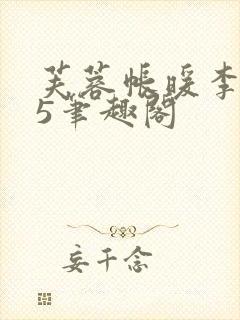 芙蓉帐暖李
5笔趣阁
妄千念